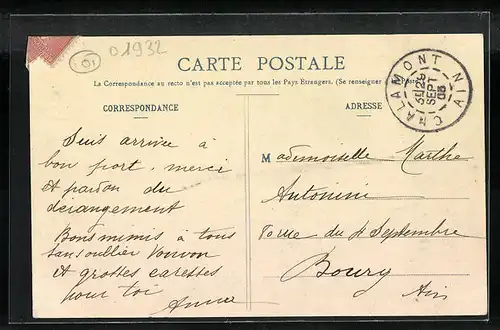 61
01932
CARTE POSTALE
La Correspondance au recto n'est pas acceptée par tous les Pays Etrangers. (Se renseigner
CORRESPONDANCE
ADRESSE
CHALAMONT AIN
28
SEPT
05
Suis arrivée à
bon port, merci
et pardon du
dérangement
Bons mimis à tous
sans oublier Vonvon
et grosses caresses
pour toi
Anna
Mademoiselle Marthe
Antonini
rue du 4 Septembre
Bourg
Ain